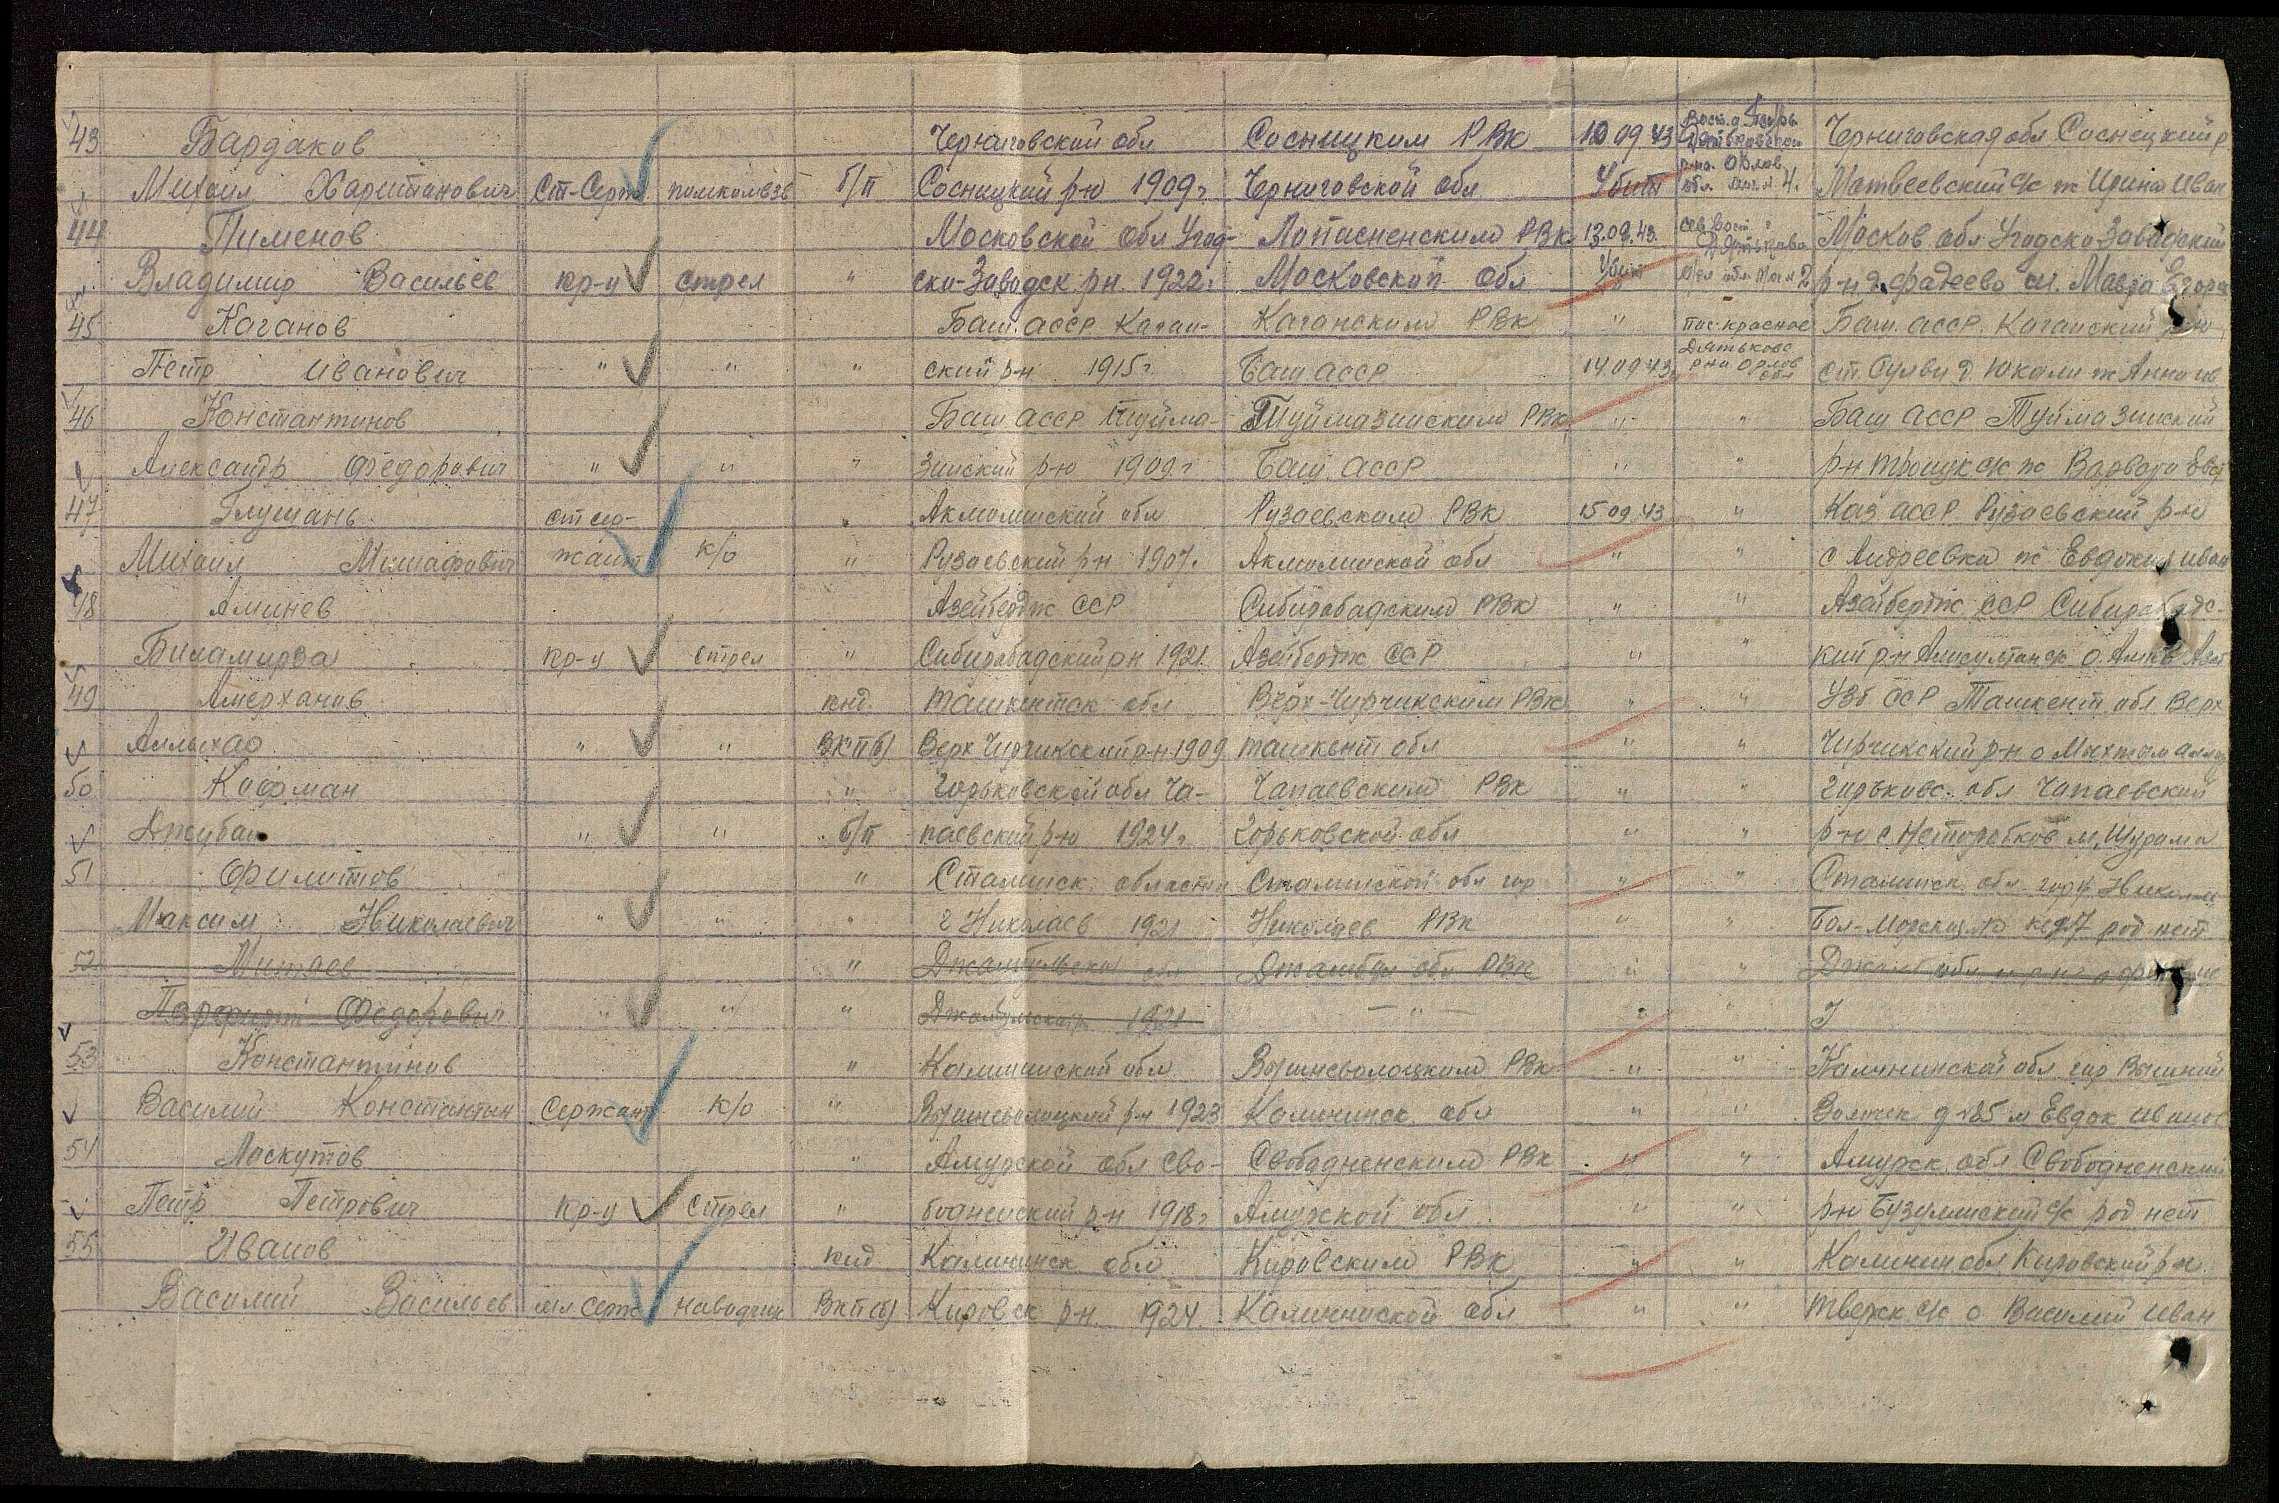 43 Бардаков Черниговской обл Сосницким РВК 10 09 43 Черниговская обл Соснецкий р
Михаил Харитонович Ст-Серж помкомвзв б/п Сосницкий р-н 1909г Черниговской обл Убит Матвеевский с/с ж Ирина Иван
44 Пименов Московской обл Угод- Лопасненским РВК 13.09.43. Сев Вост Москов обл Угодско Заводский
Владимир Васильев кр-ц стрел " ско-Заводск р-н 1922г Московской обл Убит р-н д. Фадеево м. Мавра Егоров
45 Каганов Баш. АССР Каган- Каганским РВК " пос. Красное Баш. АССР. Каганский р-н
Петр Иванович " " " ский р-н 1915г Баш АССР 14 09 43 Дятьковс р-на Орлов обл ст. Сулея д Юкали ж Анна
46 Константинов Баш АССР Туйма- Туймазинским РВК " " Баш АССР Туймазинский
Александр Федорович " " " зинский р-н 1909г Баш. АССР " " р-н Троицк с/с ж Варвара
47 Глушань ст сер- " Акмолинской обл Рузаевским РВК 15 09 43 " Каз АССР Рузаевский р-н
Михаил жант к/о " Рузаевский р-н 1907г. Акмолинской обл " " с Андреевка ж Евдокия Иван
48 Аминев Азейбердж ССР Сибирабадским РВК " " Азейбердж ССР Сибирабадс-
Биламирза кр-ц стрел " Сибирабадский р-н 1921. Азейбердж ССР " " кий р-н
49 Амерханов кнд. Ташкентск обл Верх-Чирчикским РВК " " Узб ССР Ташкент обл Верх
" " ВКП(б) Верх Чирчикский р-н 1909 Ташкент обл " " Чирчикский р-н о
50 Кофман " Горьковской обл Ча- Чапаевским РВК " " Горьковс. обл Чапаевский
" " б/п паевский р-н 1924г Горьковской обл " " р-н с
51 Филитов " Сталинск области Сталинской обл гор " " Сталинск. обл. гор Николаев
Максим Николаевич " " " г Николаев 1921 Николаев РВК " " Бол-Морская род нет
52 Митяев " Джамбульской обл Джамбул обл РВК " "
Федорович " " " Джамбульск р 1921 — " — " "
53 Константинов " Калининской обл Вышневолоцким РВК " " Калининской обл гор Вышний
Василий Константин Сержант к/о " Вышневолоцкий р-н 1923 Калининск обл " " Волочек д 25 м Евдок Иванов
54 Лоскутов " Амурской обл Сво- Свободненским РВК " " Амурск. обл Свободненский
Петр Петрович кр-ц стрел " бодненский р-н 1918г Амурской обл " " р-н Бузулинский с/с род нет
55 Иванов кнд Калининск обл Кировским РВК " " Калинин обл Кировский р-н
Василий Васильев мл Серж наводчик ВКП(б) Кировск р-н. 1924 Калининской обл " " Тверск с/с о Василий Иван